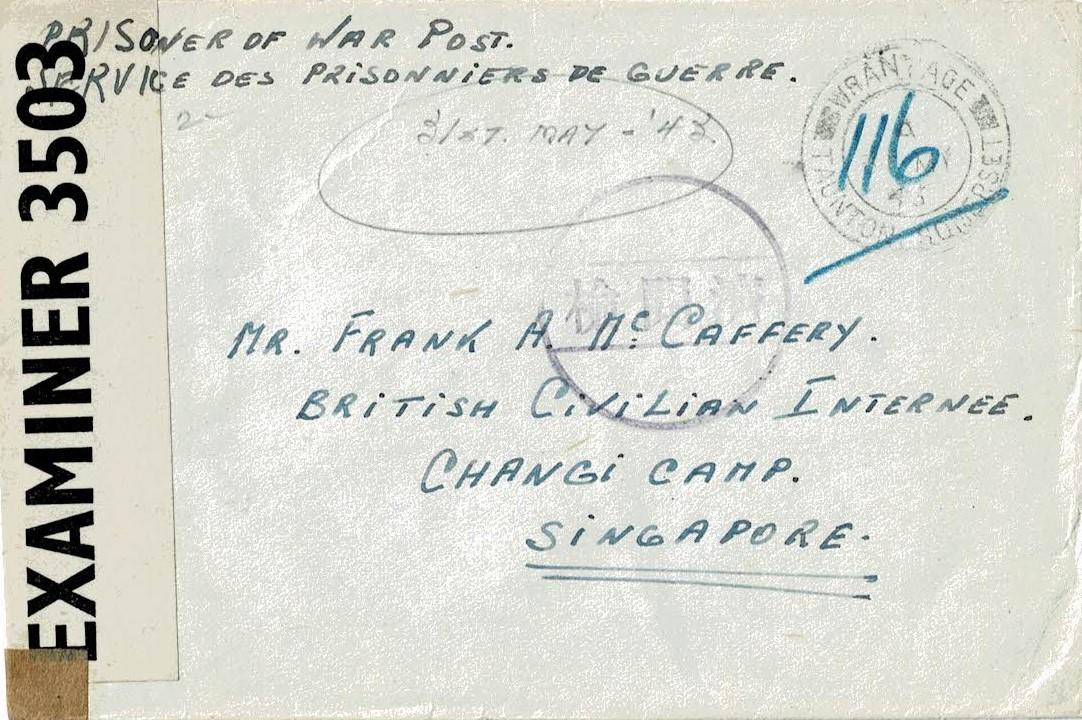 PRISONER OF WAR POST.
SERVICE DES PRISONNIERS DE GUERRE.
31ST. MAY - '43.
WRANTAGE
TAUNTON SOMERSET
116
MR. FRANK A. Mc CAFFERY.
BRITISH CIVILIAN INTERNEE.
CHANGI CAMP.
SINGAPORE.
EXAMINER 3503